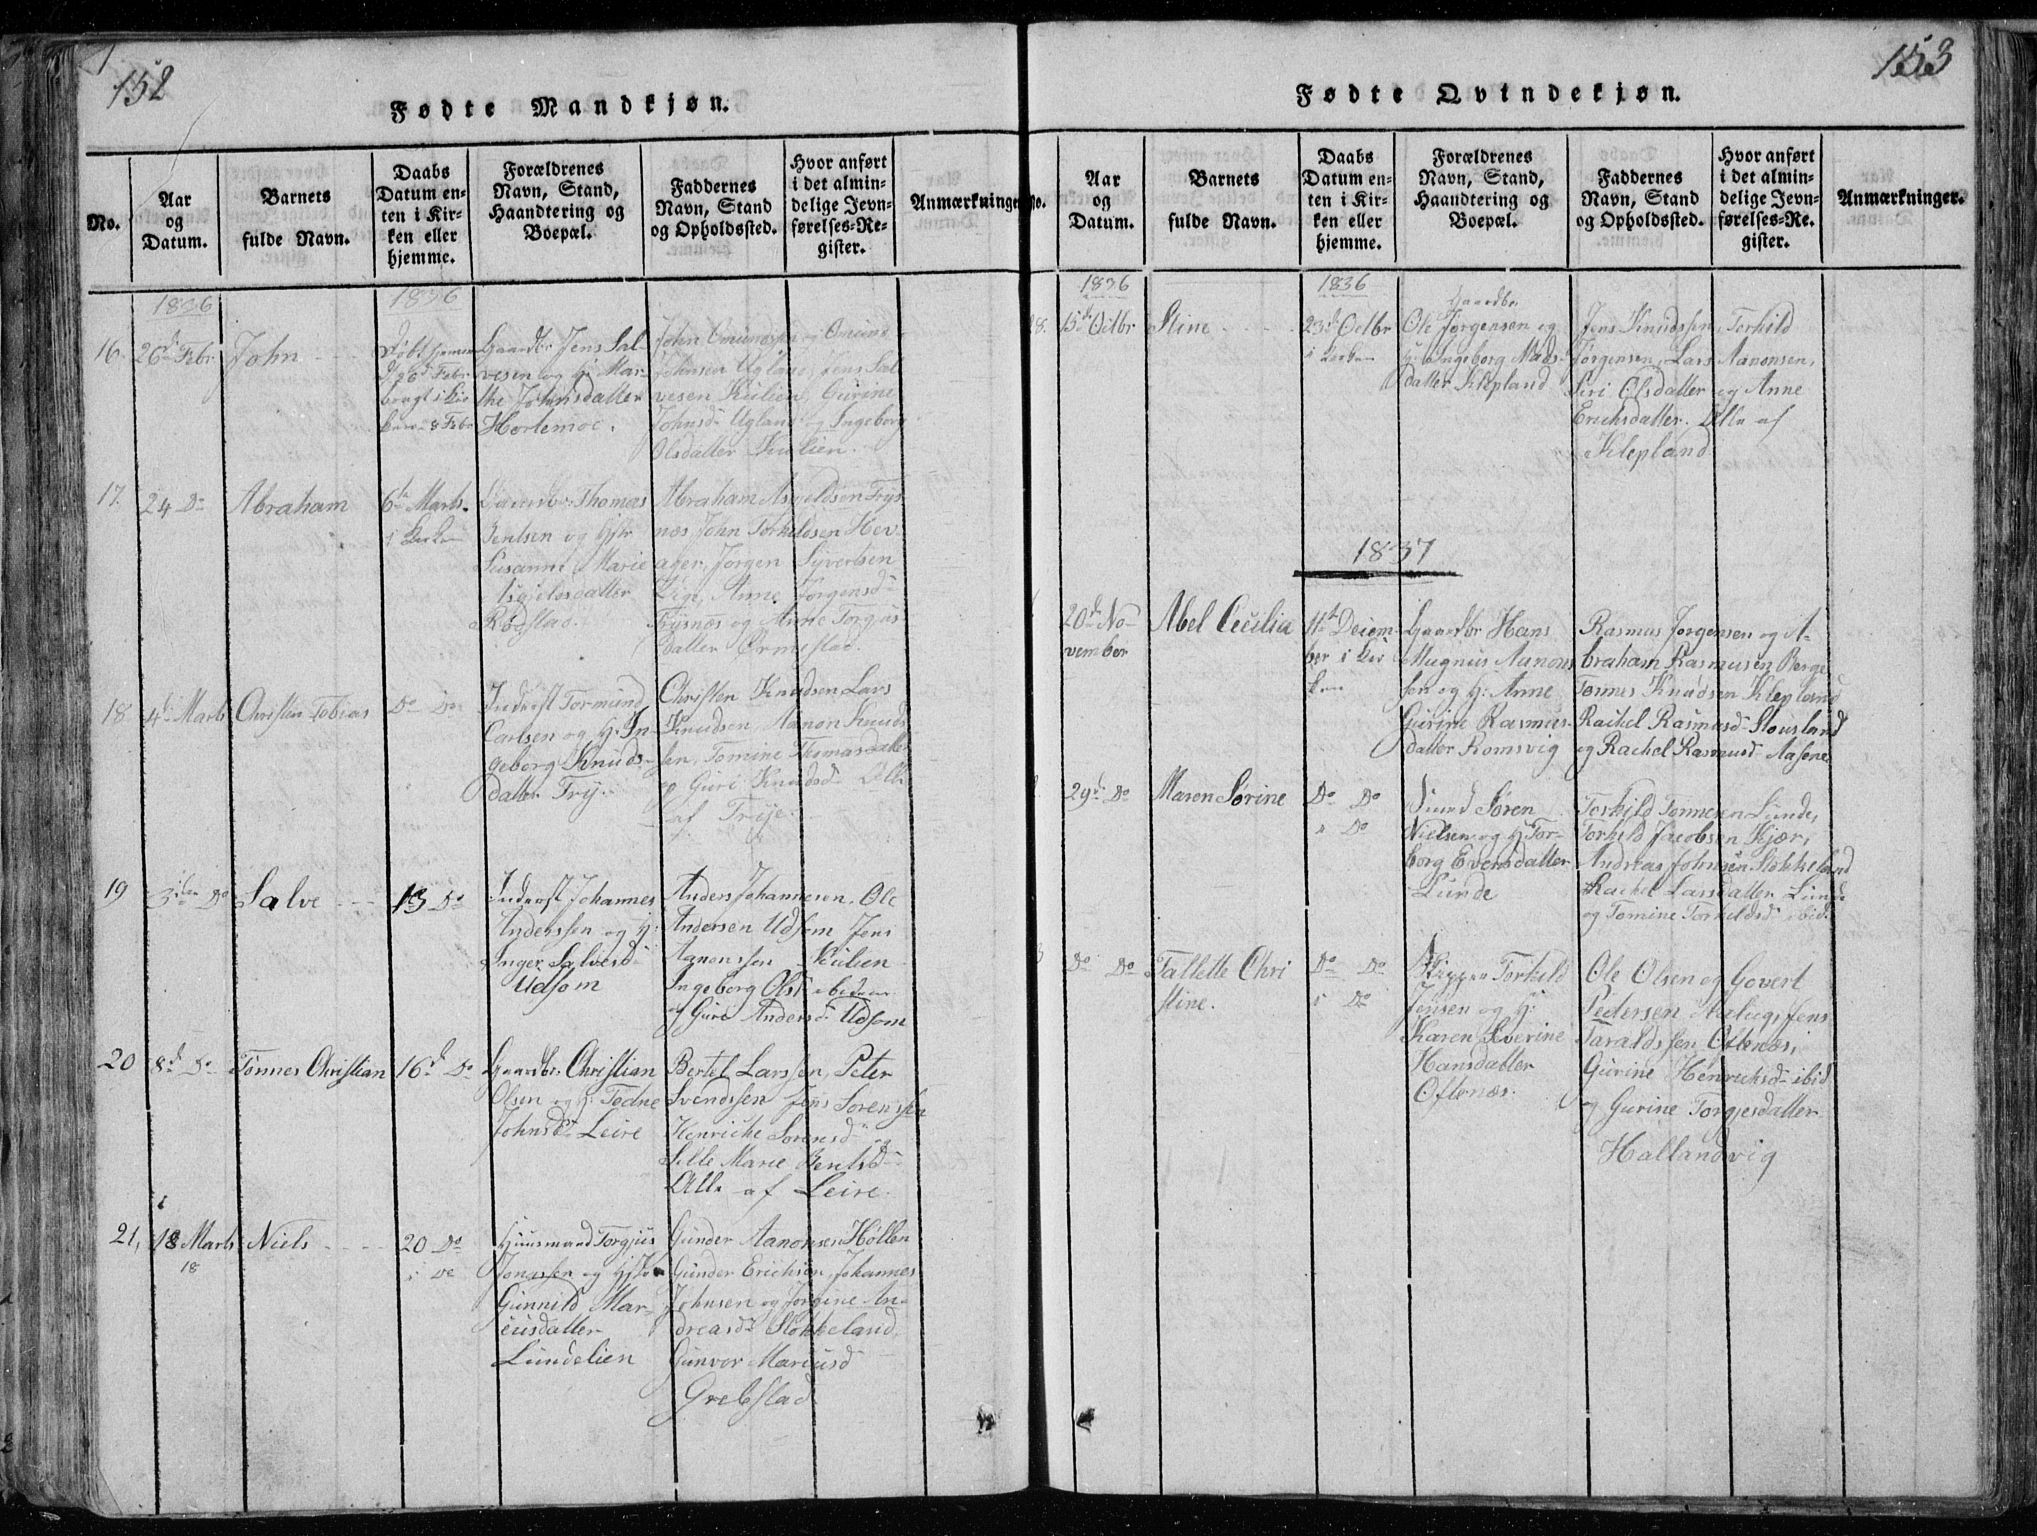 152
Fødte Mandkjøn.
No.
Aar
og
Datum.
Barnets
fulde Navn.
Daabs
Datum en-
ten i Kir-
ken eller
hjemme.
Forældrenes
Navn, Stand,
Haandtering og
Boepæl.
Faddernes
Navn, Stand
og Opholdssted.
Hvor anført
i det almin-
delige Jevn-
førelses-Re-
gister.
Anmærkninger
1836
1836
16.
26d Febr
John
Døbt hjemme
bragt i Kir
Gaardbr Jens Sal-
vesen og H: Mar-
the Johnsdatter
Hortemoe.
John Omundsen og Omund
Johnsen Ugland, Jens Sal
vesen Kulien, Gurine
Johnsd: Ugland og Ingeborg
Olsdatter Kulien.
17.
24 Do
Abraham
6te Marts.
i Kirken
Gaardbr: Thomas
Bentsen og Hstr
Susanne Marie
Rødstad.
Abraham Asgeldsen Frys
næs John Torkildsen Hev
ager, Jørgen Syvertsen
Vige, Anne Jørgensd:
Frysnæs og Anne Torgius
datter Ormestad.
18.
4de Marts
Christen Tobias
Do Do
Inderst Tormund
Carlsen og H: In
geborg Knuds-
datter Try.
Christen Knudsen Lars
Knudsen Aanon Knud
sen, Tomine Thomasdatter
og Guri Knudsd: Alle
af Trye.
19
3die Do
Salve
13 Do
Inderst Johannes
Anderssen og H:
Inger Salvesd
Udsom
Anders Johannesen, Ole
Andersen Udsom Jens
Aanonssen Kulien
Ingeborg Olsd ibidem
og Guri Andersd: Udsom
20
8d Do
Tønnes Christian
16d Do
Gaardbr: Christian
Olsen og H: Todne
Johnsd: Leire
Bertel Larssen, Peter
Svendssen Jens Sorenssen
Henriche Sorensd:
Sille Marie Bentsd:
Alle af Leire.
21,
18 Marts
18
Niels
20 Do
i Do
Huusmand Torgius
Jonassen og Hstr
Gunnild Mar-
cusdatter
Lundelien
Gunder Aanonsen Høllen
Gunder Erichsen, Johannes
Johnsen og Jorgine An-
dreasd: Stokkeland,
Gunvor Marcusd
Grebstad
153
Fødte Qvindekjøn.
No.
Aar
og
Datum.
Barnets
fulde Navn.
Daabs
Datum en-
ten i Kir-
ken eller
hjemme.
Forældrenes
Navn, Stand,
Haandtering og
Boepæl.
Faddernes
Navn, Stand
og Opholdssted.
Hvor anført
i det almin-
delige Jevn-
førelses-Re-
gister.
Anmærkninger.
1836
1836
28.
15de Octbr
Stine
23d Octbr
i Kirken
Gaardbr
Ole Jørgensen og
H: Ingeborg Mads-
datter Klepland
Jens Knudssen, Torkild
Jørgensen, Lars Aanonsen,
Siri Olsdatter og Anne
Erichsdatter. Alle af
Klepland
1837
20d No
vember
Abel Cecilia
11te Decem
ber i Kir
ken
Gaardbr Hans
Magnus Aanons
sen og H: Anne
Gurine Rasmus-
datter Romsvig
Rasmus Jorgensen og A-
braham Rasmusen Berge
Tønnes Knudsen Klepland
Rachel Rasmusd: Stousland
og Rachel Rasmusd: Aasene
29d Do
Maren Sørine
Do Do
i Do
Søren
Nielsen og H: Tor-
borg Evensdatter
Lunde
Torkild Tonnesen Lunde,
Torkild Jacobsen Kjær,
Andreas Johnsen Stokkeland
Rachel Larsdatter Lunde
og Tomine Torkildsd: ibid.
Do Do
Tallette Chri
stine.
Do Do
i Do
Skipper Torkild
Jensen og H:
Karen Severine
Hansdatter
Oftenæs.
Ole Olsen og Govert
Pedersen Jens
Taraldssen Oftenæs,
Gurine Henriksd: ibid
og Gurine Torgjesdatter
Hallandvig